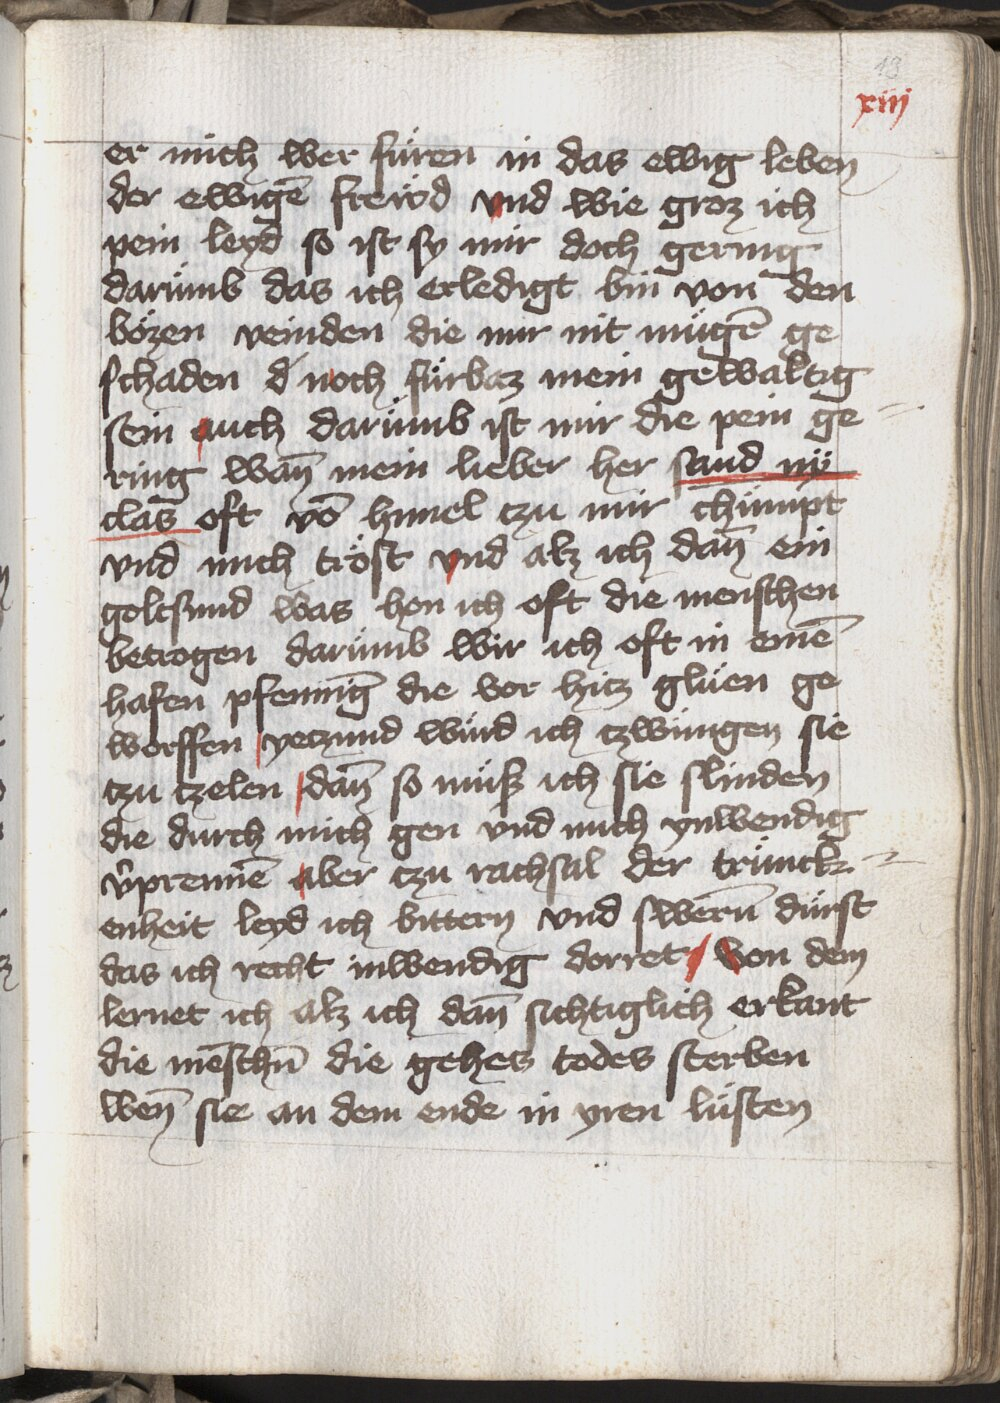 13
xiij
er mich wer füren in das ewig leben
der ewigē frewd vnd wie groz ich
pein leyd so ist sy mir doch gering
darümb das ich erledigt bin von den
bözen veinden die mir nit mügē ge
schaden d' noch fürbaz mein gewaltig
sein auch darümb ist mir die pein ge
ring wañ mein lieber her sand ny
clas oft võ himel czu mir chümpt
vnd mich tröst vnd alz ich dañ ein
goltsmid was hon ich oft die menschen
betrogen darümb wir ich oft in einē
hafen pfennīg die vor hicz glüen ge
worffen yeczund würd ich czwungen sie
czu czelen dañ so müß ich sie slinden
die durch mich gen vnd mich ynwendig
v̉prennē aber czu rachsal der trünck
enheit leyd ich bittern vnd swern̄ dürst
das ich recht inwendig dorret von dem
lernet ich alz ich dañ sichtiglich erkant
die mēschn̄ die gehes todes sterben
weñ sie an dem ende in yren lüsten